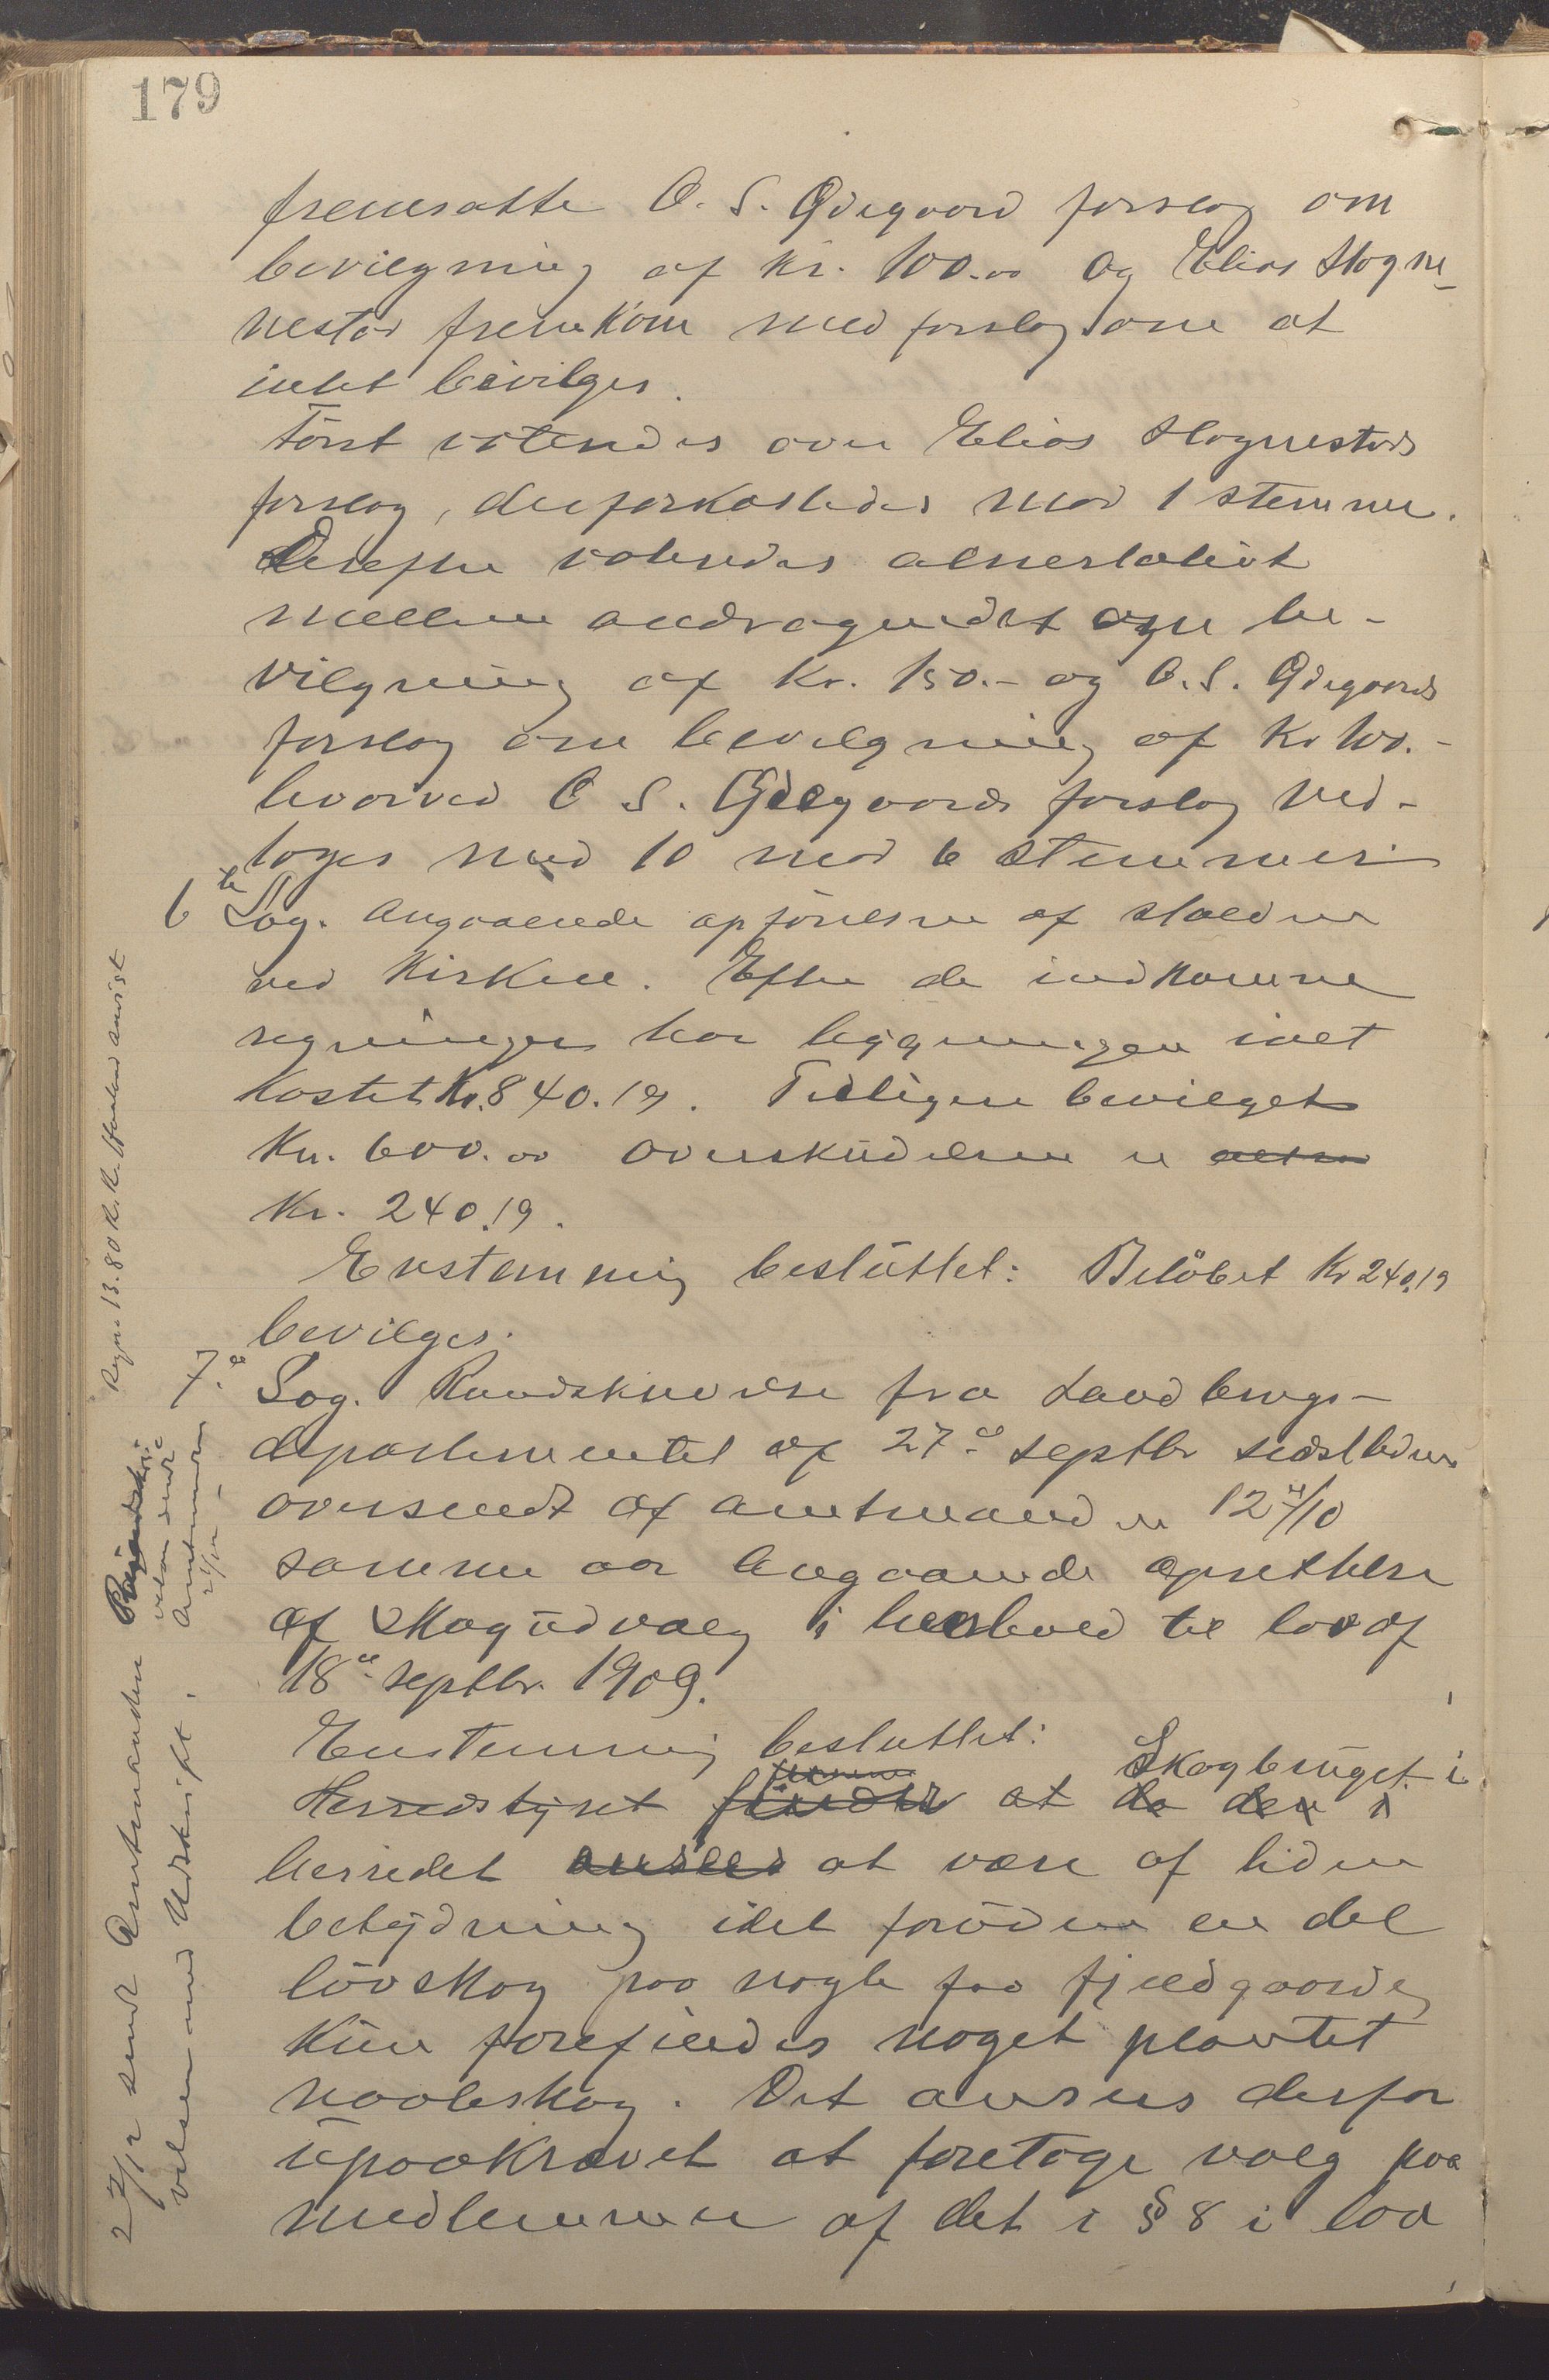 179
fremsatte O. S. Ødegaard forslag om
bevilgning af Kr. 100.00 og Elias Hogne-
nestad fremkom med forslag om at
intet bevilges.
Först voteredes over Elias Hognestads
forslag, der forkastedes mod 1 stemme.
Derefter voteredes alternativt
mellem andragendet om be-
vilgning af Kr. 150.- og O. S. Ødegaards
forslag om bevilgning af Kr 100.-
hvorved O S. Ødegaards forslag ved-
toges med 10 mod 6 stemmer
6te Sag. Angaaende opförelsen af stalden
ved Kirken. Efter de indkomne
regninger har bygningen ialt
kostet Kr. 840.19. Tidligere bevilget
Kr. 600.00 Overskridelsen er altsaa
Kr. 240.19.
Enstemmig besluttet: Belöbet Kr 240.19
bevilges.
7.de Sag. Rundskrivelse fra Landbrugs-
departementet af 27de septbr sidstleden
oversendt af amtmanden 12/10
samme aar angaaende oprettelse
af Skogudvalg i henhold til lov af
18de septbr. 1909.
Enstemmig besluttet: Skogbruget i
Herredstyret finder at da den i
herredet ansees at være af liden
betydning idet foruden en del
lövskog paa nogle faa fjeldgaarde,
kun forefindes noget plantet
naaleskog. Det ansees derfor
upaakrævet at foretage valg paa
medlemmer af det i § 8 i lov
Regn. 13.80 K. K. anvist
27/12 sendt Amtmanden
velsen med Udskrift.
Amtmanden